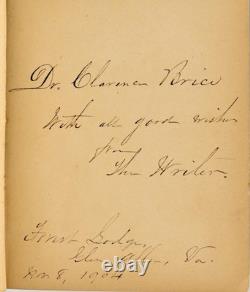 Dr. Clarence Brice
With all good wishes
from
The Writer.
Forest Lodge,
Glen Allen, Va.
Nov 8, 1904